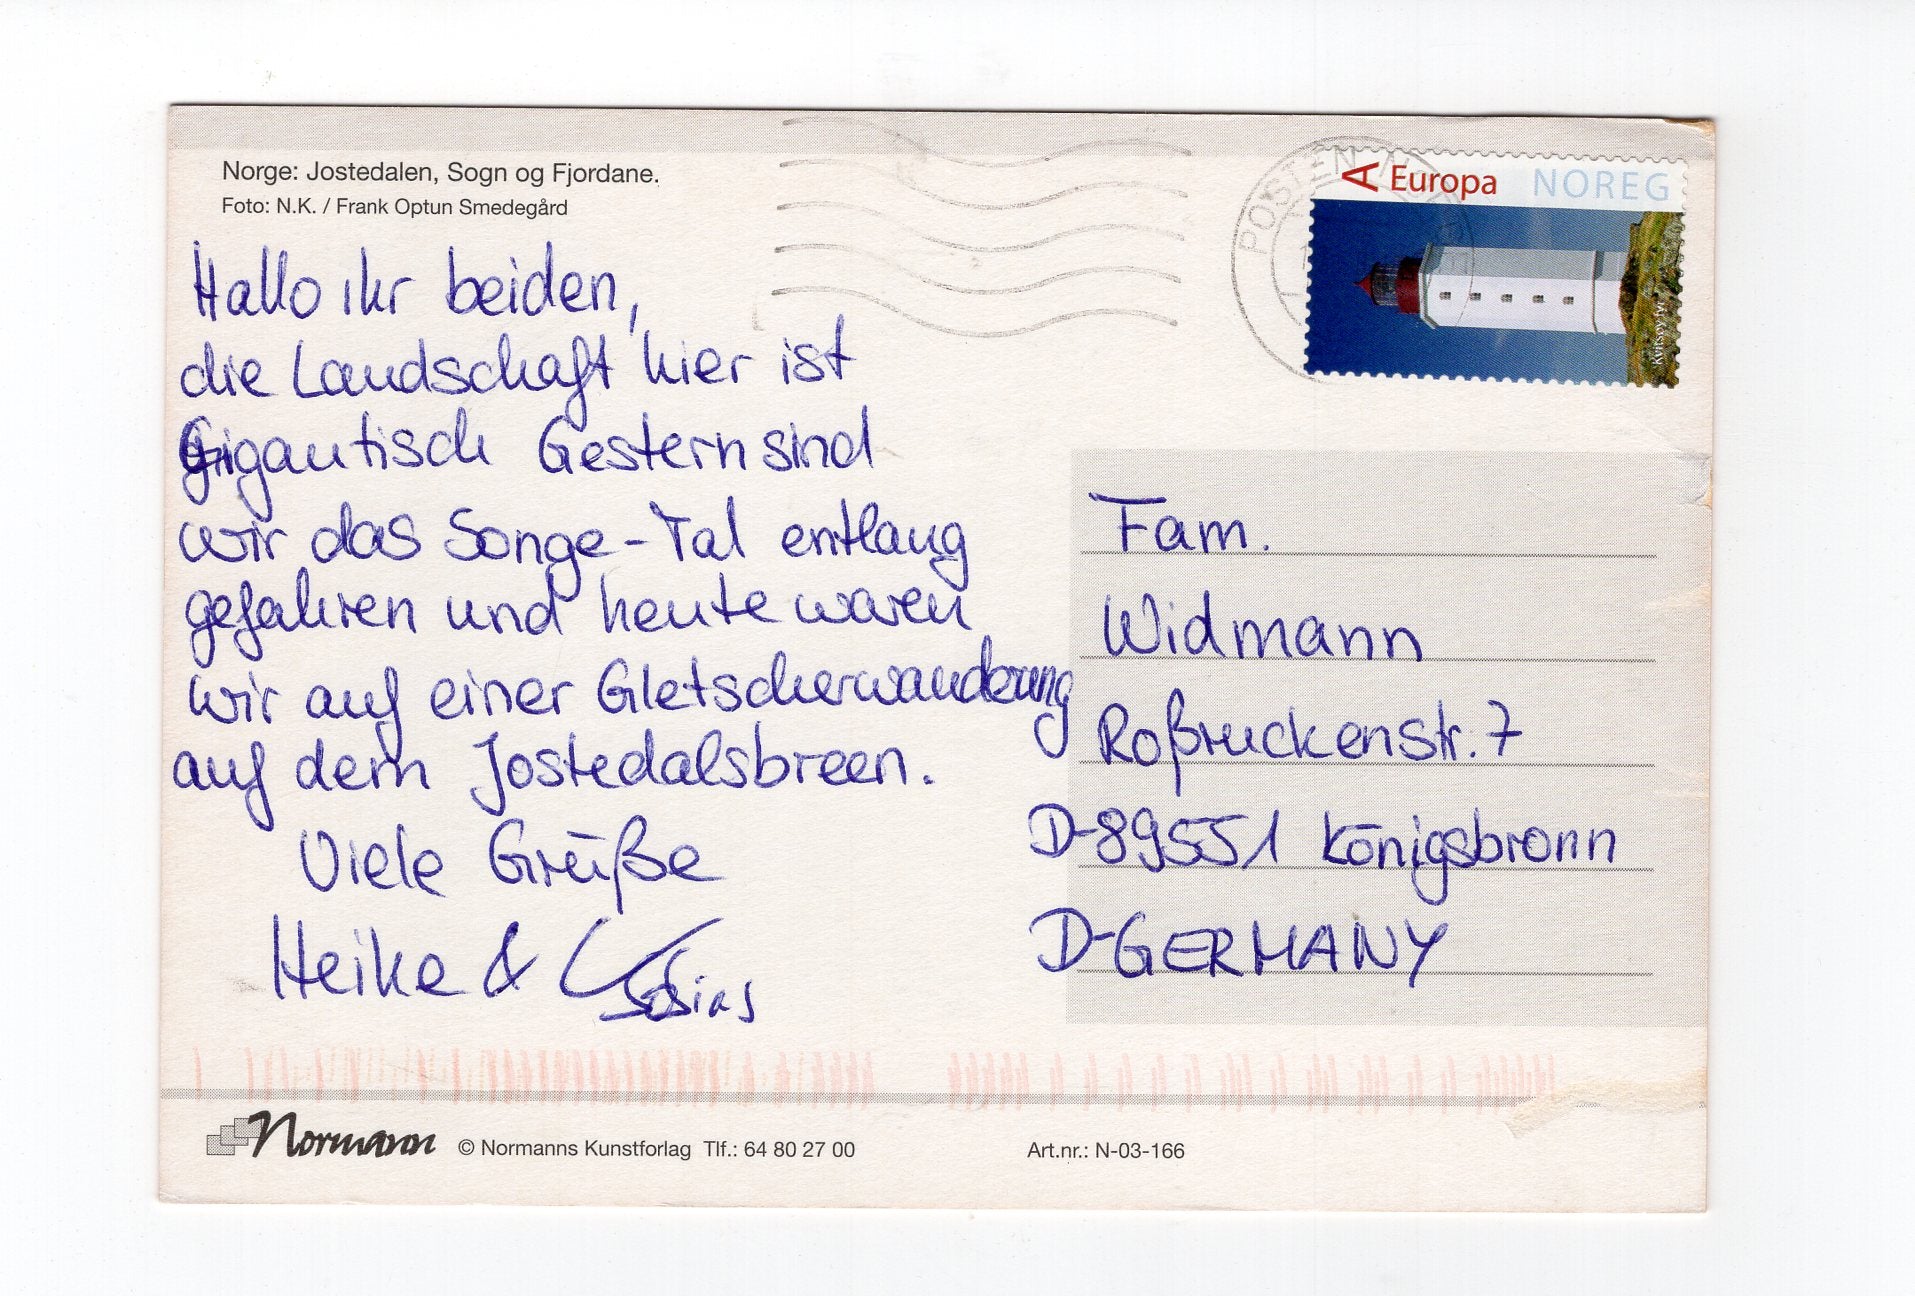 Norge: Jostedalen, Sogn og Fjordane.
Foto: N.K. / Frank Optun Smedegård
Hallo ihr beiden,
die Landschaft hier ist
Gigantisch Gestern sind
wir das Songe-Tal entlang
gefahren und heute waren
wir auf einer Gletscherwanderung
auf dem Jostedalsbreen.
Viele Grüße
Heike & Tobias
POSTEN
A Europa NOREG
Kvitsøy fyr
Fam.
Widmann
Roßruckenstr. 7
D-89551 Königsbronn
D-GERMANY
Normann © Normanns Kunstforlag Tlf.: 64 80 27 00
Art.nr.: N-03-166